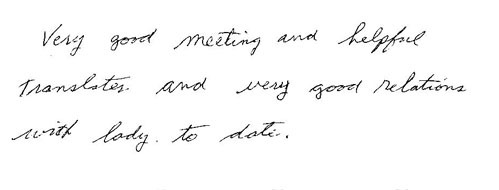 Very good meeting and helpful
Translater. and very good relations
with lady. to date.